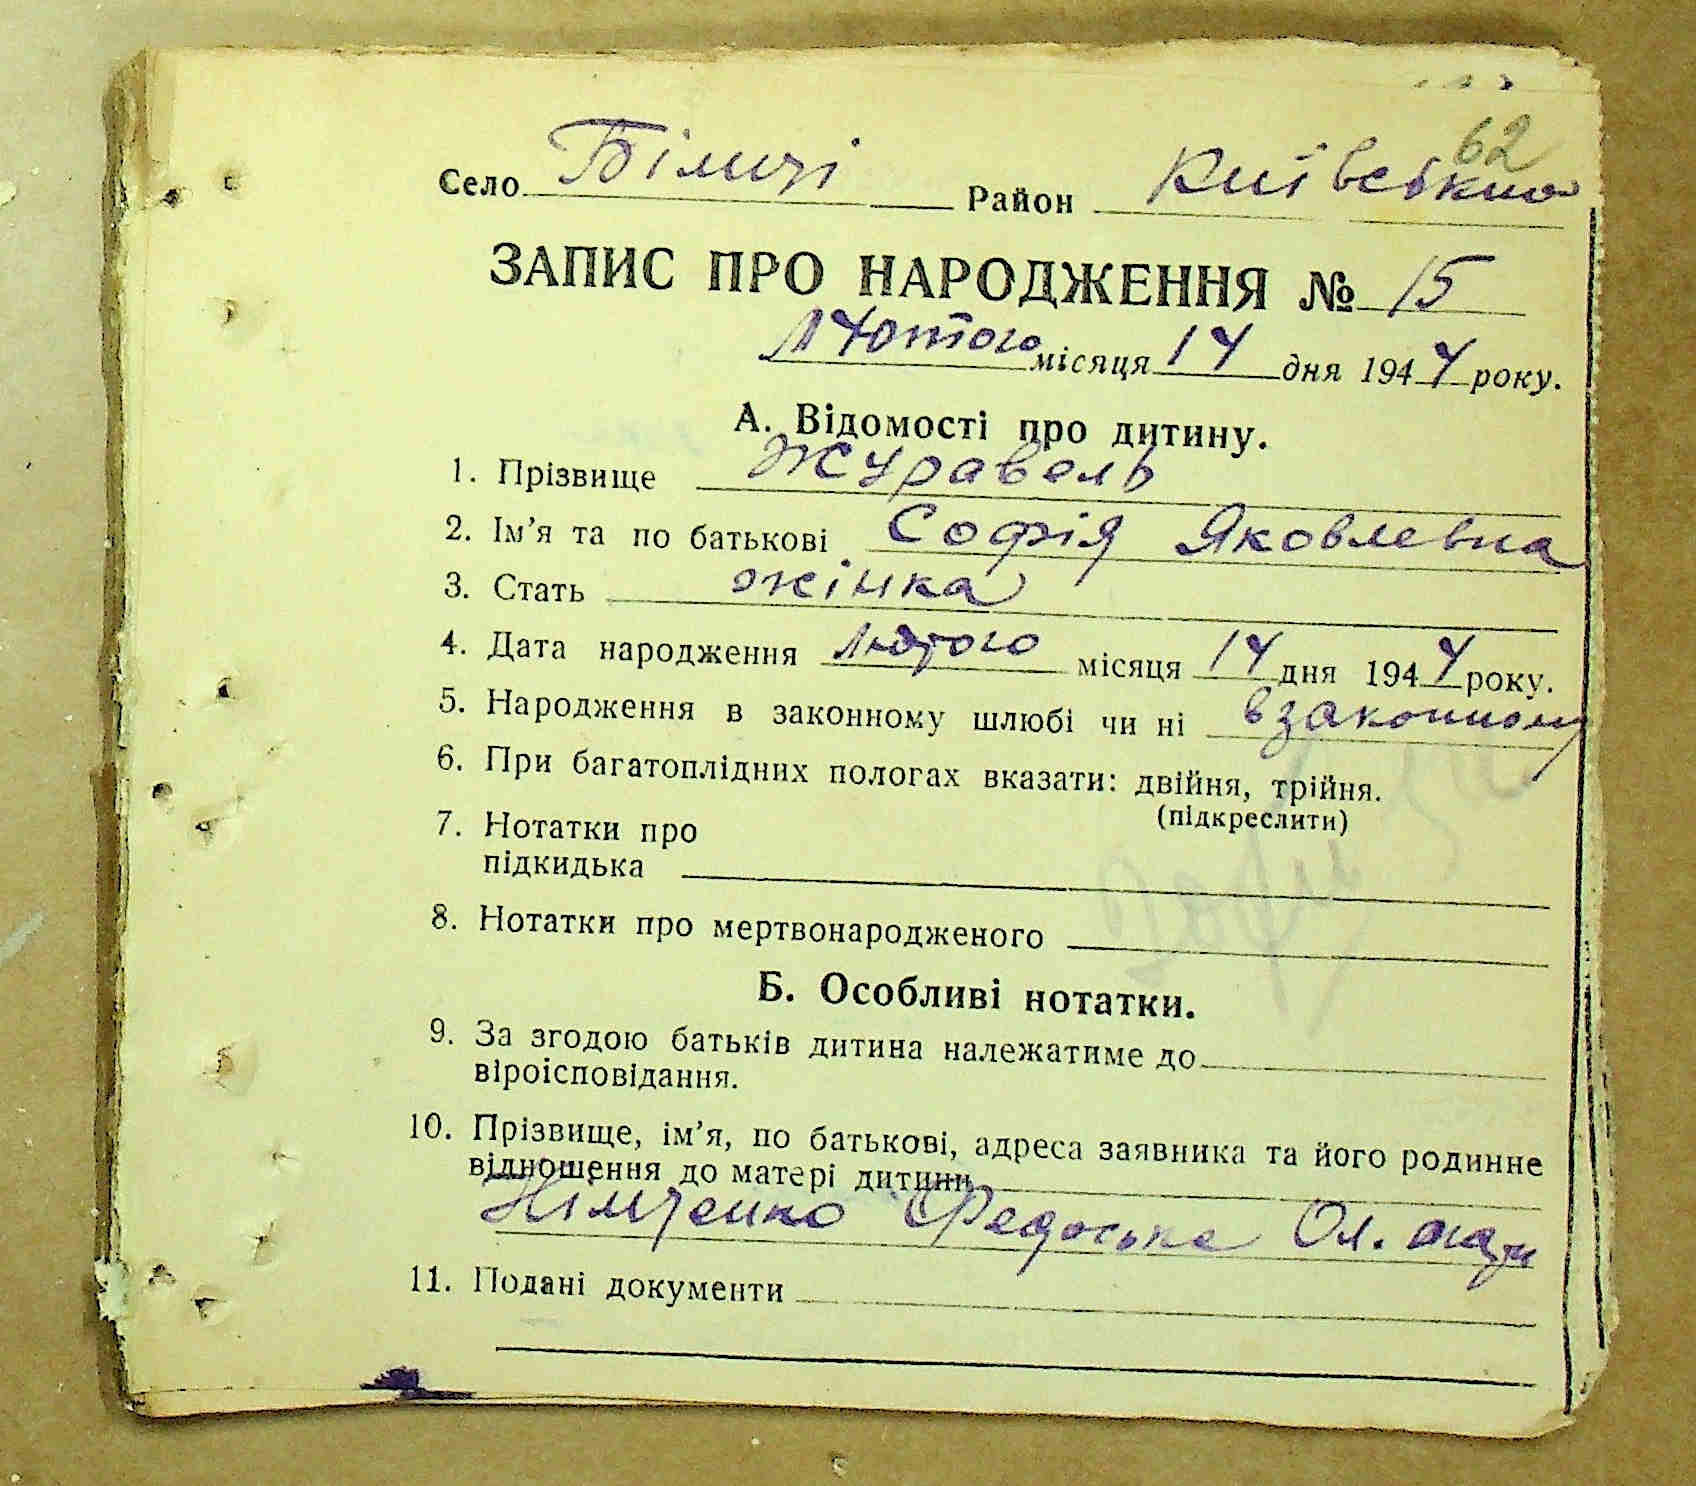 62
Село Біличі Район Київський
ЗАПИС ПРО НАРОДЖЕННЯ № 15
Лютого місяця 14 дня 1944 року.
А. Відомості про дитину.
1. Прізвище Журавель
2. Ім’я та по батькові Софія Яковлевна
3. Стать жінка
4. Дата народження Лютого місяця 14 дня 1944 року.
5. Народження в законному шлюбі чи ні в законному
6. При багатоплідних пологах вказати: двійня, трійня.
(підкреслити)
7. Нотатки про
підкидька
8. Нотатки про мертвонародженого
Б. Особливі нотатки.
9. За згодою батьків дитина належатиме до
віроісповідання.
10. Прізвище, ім’я, по батькові, адреса заявника та його родинне
відношення до матері дитини
Німченко Федоська Ол. мати
11. Подані документи